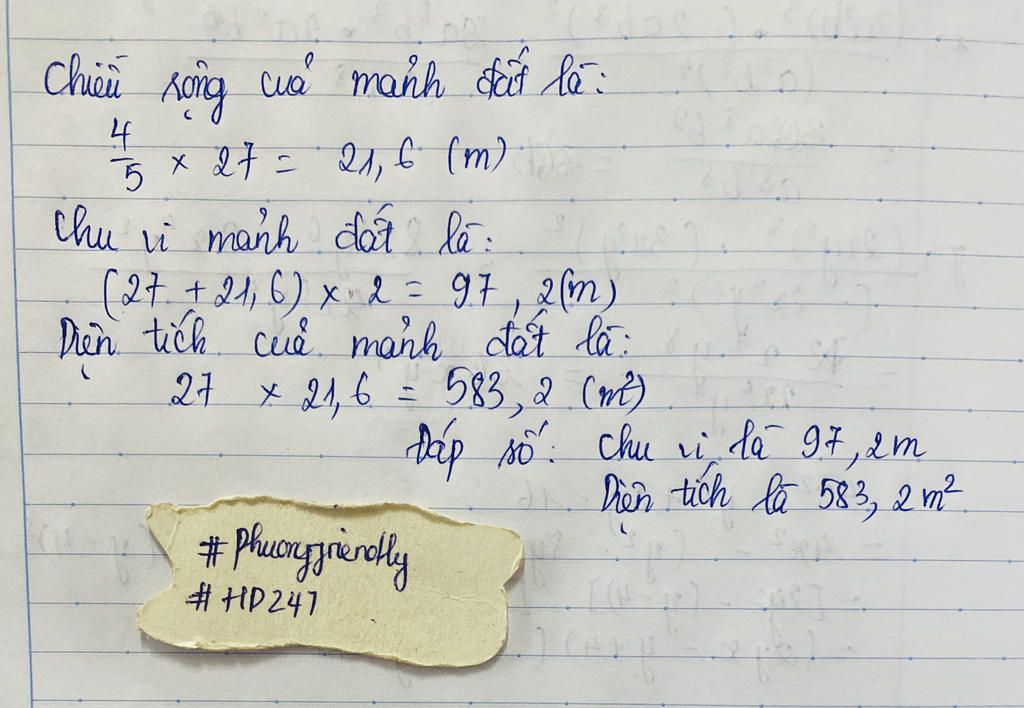 Chiều rộng của mảnh đất là:
4/5 × 27 = 21,6 (m)
Chu vi mảnh đất là:
(27 + 21,6) × 2 = 97,2(m)
Diện tích của mảnh đất là:
27 × 21,6 = 583,2 (m²)
Đáp số: Chu vi là 97,2m
Diện tích là 583,2 m²
#Phuongfriendly
#HD247